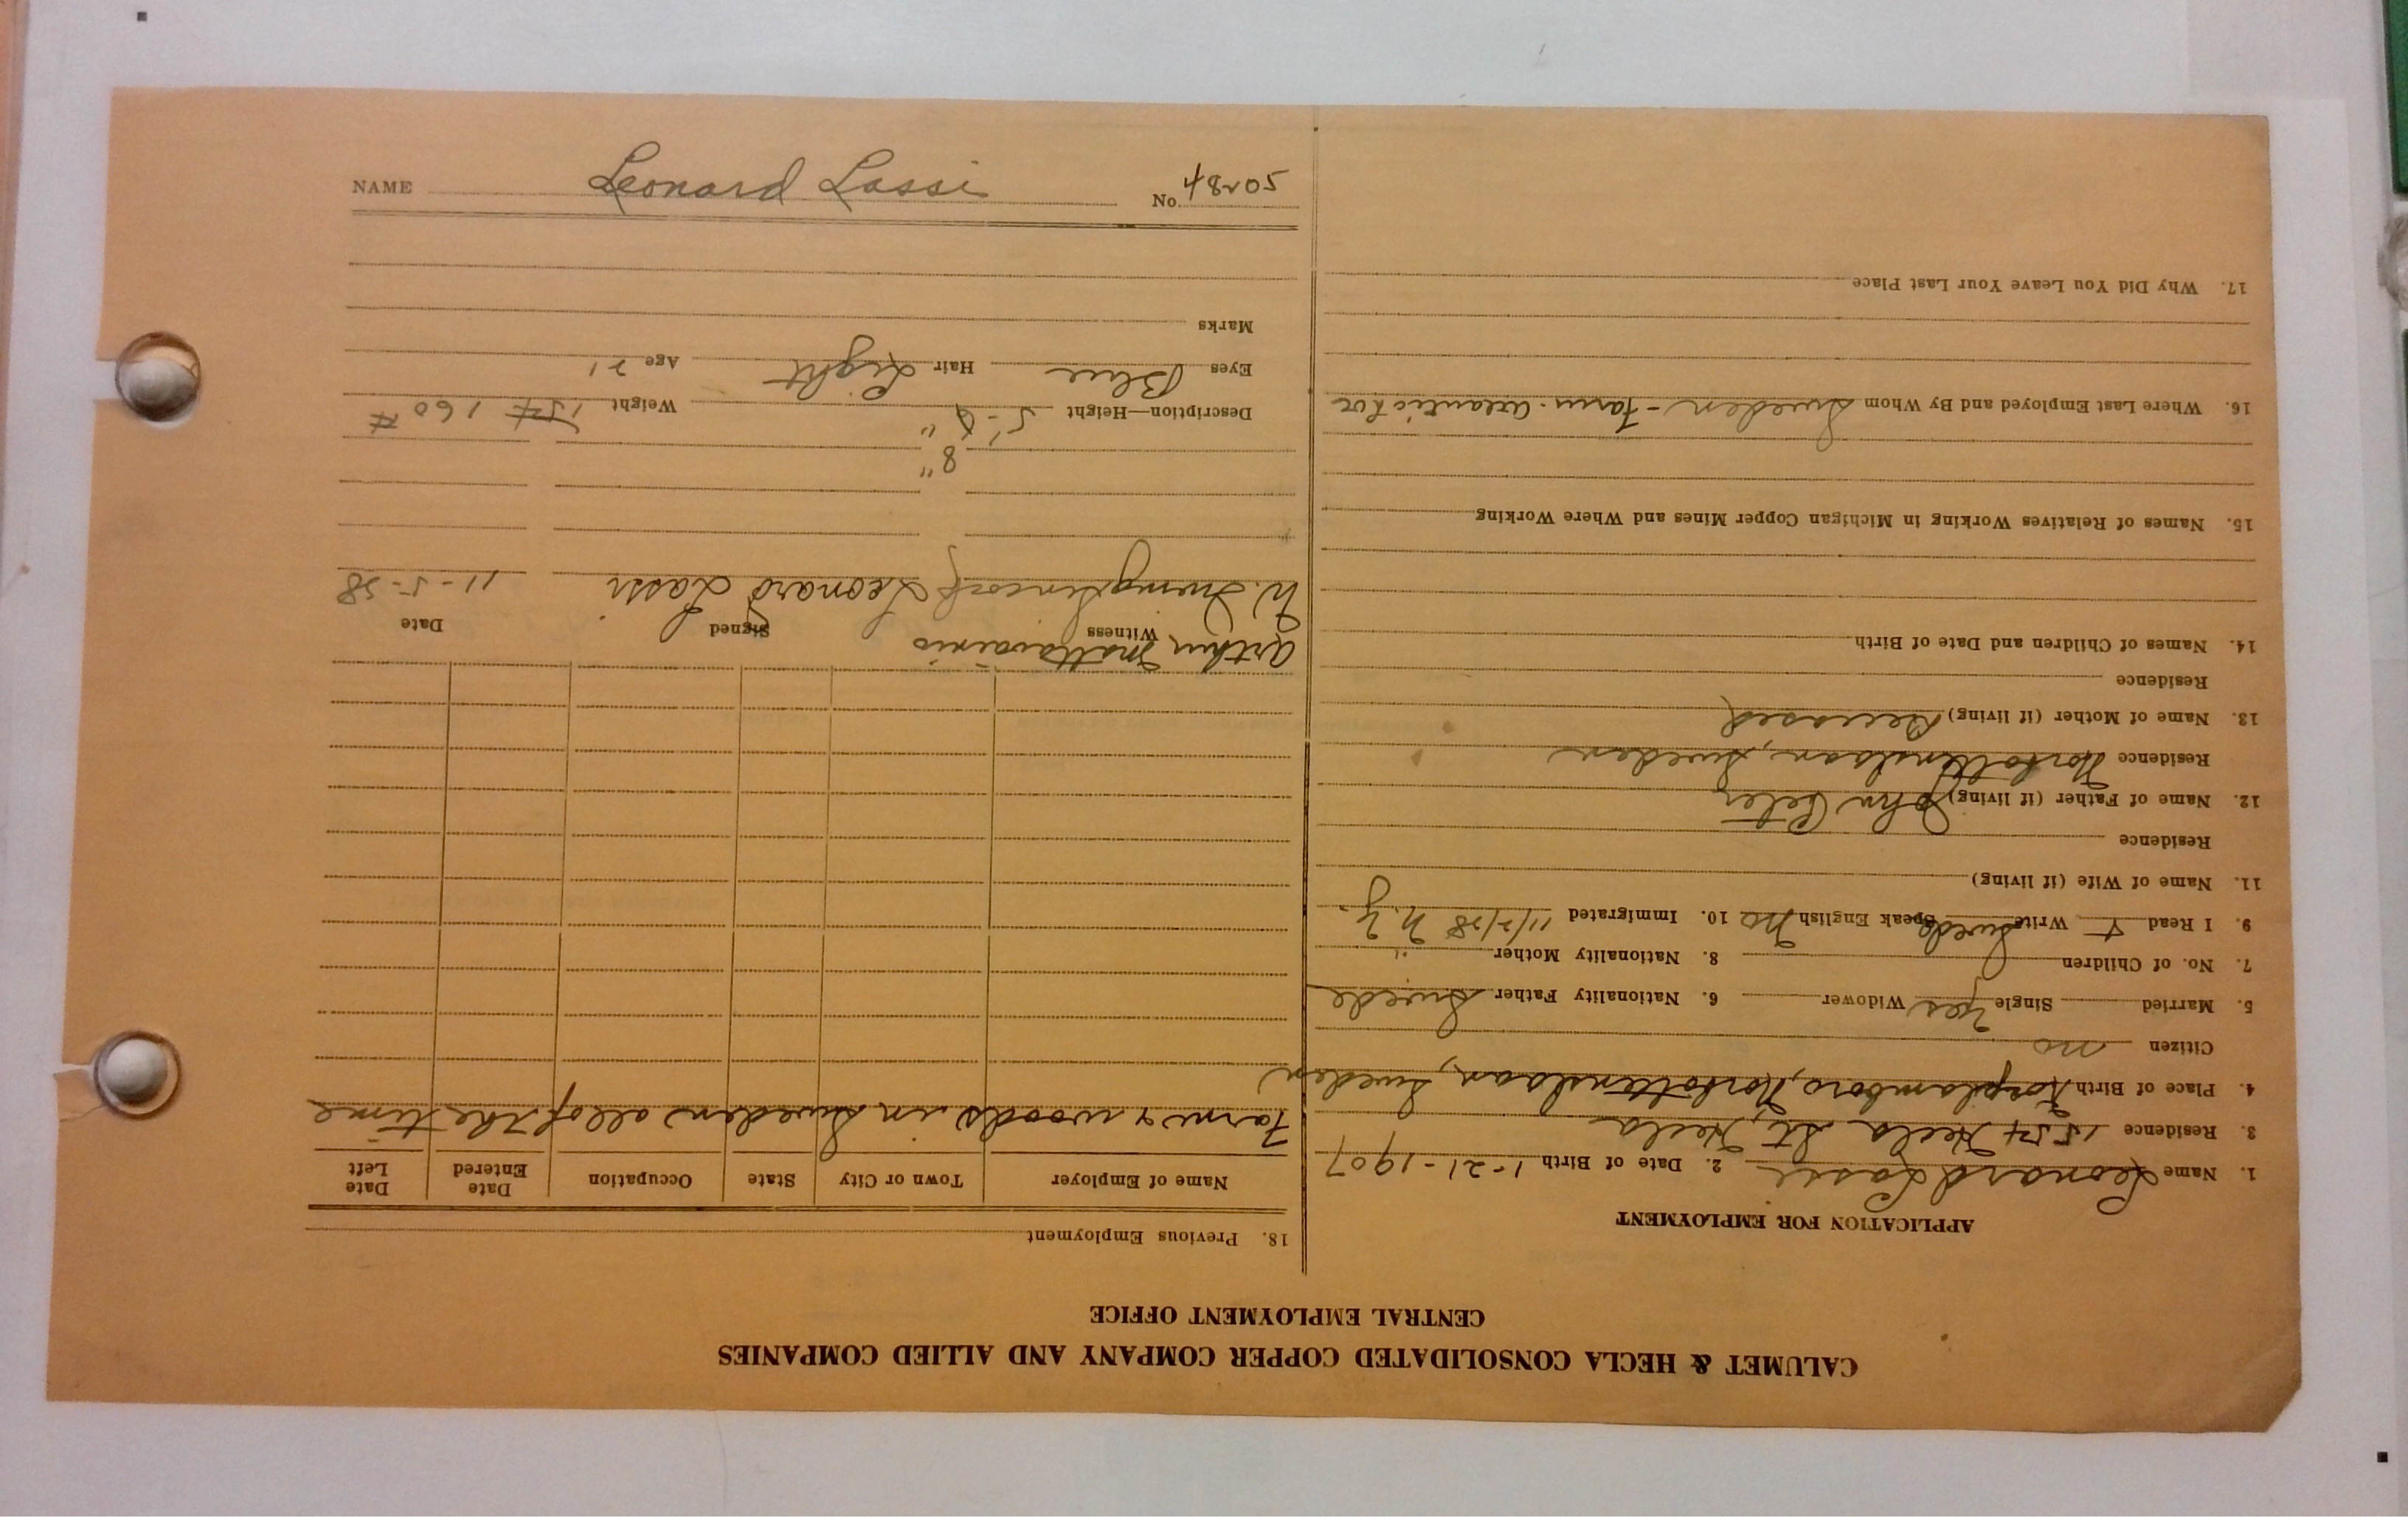 CALUMET & HECLA CONSOLIDATED COPPER COMPANY AND ALLIED COMPANIES
CENTRAL EMPLOYMENT OFFICE
APPLICATION FOR EMPLOYMENT
1. Name Leonard Lassi 2. Date of Birth 1-21-1907
3. Residence Hecla St, Hecla
4. Place of Birth Korpilambora, Norbottenslaan, Sweden
Citizen no
5. Married Single Yes Widower 6. Nationality Father Swede
7. No. of Children 8. Nationality Mother "
9. I Read Write Swede Speak English No 10. Immigrated N.Y.
11. Name of Wife (if living)
Residence
12. Name of Father (if living) John Peter
Residence Norbottenslaan, Sweden
13. Name of Mother (if living) Deceased
Residence
14. Names of Children and Date of Birth
15. Names of Relatives Working in Michigan Copper Mines and Where Working
16. Where Last Employed and By Whom Sweden - Farm
17. Why Did You Leave Your Last Place
18. Previous Employment
Name of Employer Town or City State Occupation Date Entered Date Left
Farm & woods in Sweden all of the time
Arthur Mattavainio
Witness Signed Date
Leonard Lassi 11-5-28
8"
Description—Height 5'-9" Weight 154 160 #
Eyes Blue Hair Light Age 21
Marks
NAME Leonard Lassi No. 50284